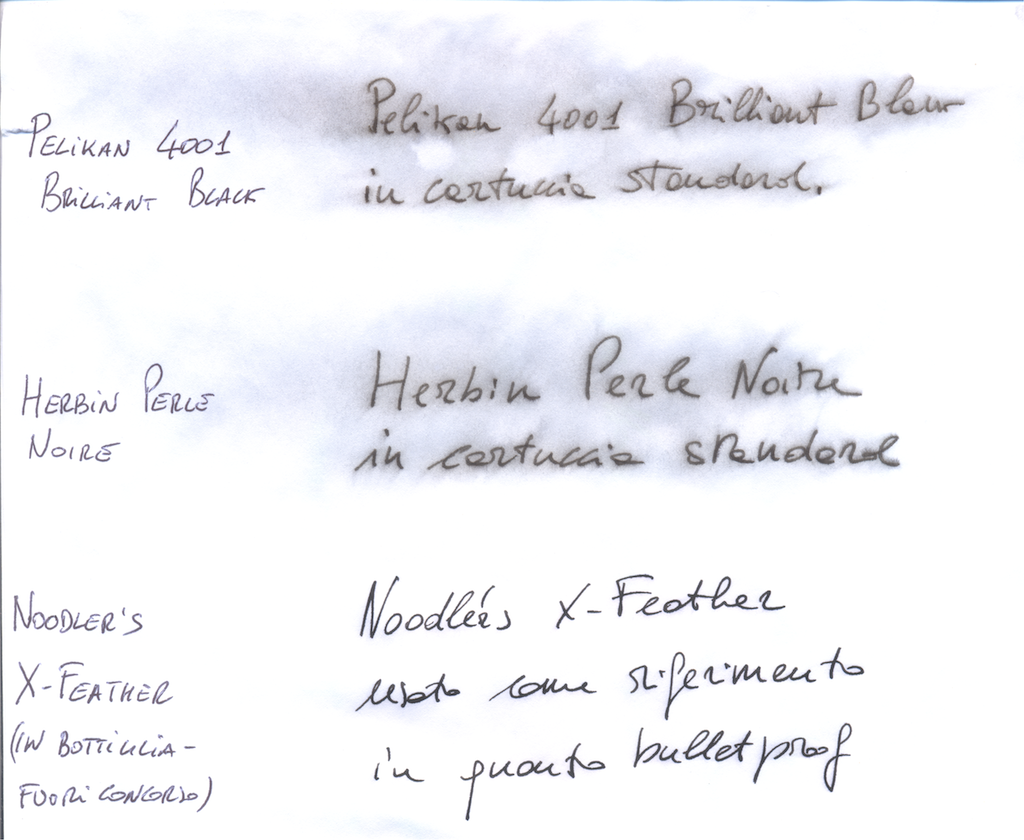 PELIKAN 4001
BRILLIANT BLACK
Pelikan 4001 Brilliant
in cartuccia standard.
HERBIN PERLE
NOIRE
Herbin Perle Noire
in cartuccia standard
NOODLER'S
X-FEATHER
(IN BOTTIGLIA-
FUORI CONCORSO)
Noodler's X-Feather
usato come riferimento
in quanto bulletproof